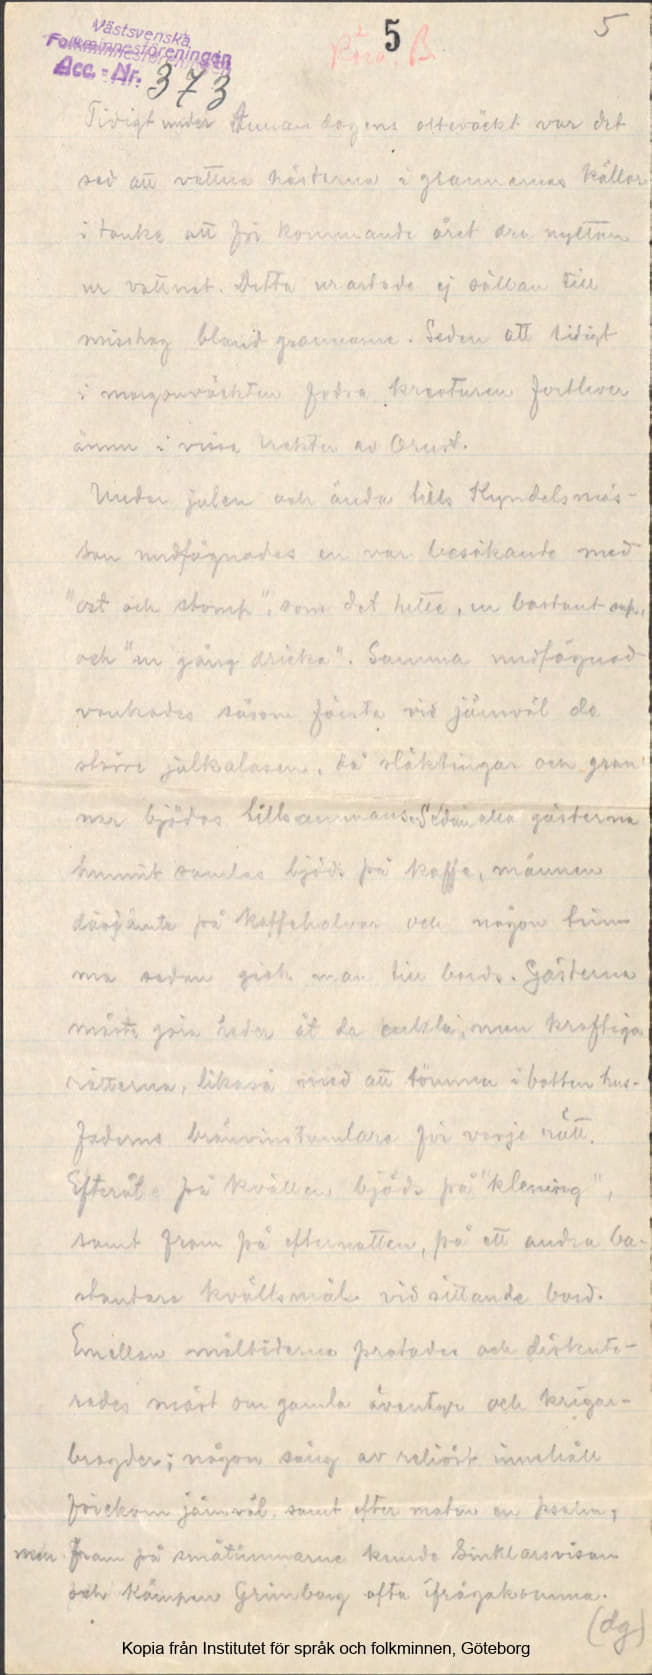 Västsvenska
Folkminnesföreningen
Acc.-Nr. 373
5
5
B
Tidigt under Annandagens otteväckt var det
sed att vattna hästarna i grannarnas källor
i tanke att för kommande året dra nyttan
ur vattnet. Detta urartade ej sällan till
misshag bland grannarne. Seden att tidigt
i morgonväckten fodra kreaturen fortlever
ännu i vissa trakter av Orust.
Under julen och ända tills Kyndelsmäs-
san undfägnades en var besökande med
"ost och stomp", som det hette, en bastant sup,
och "en gång dricka". Samma undfägnad
vankades såsom första vid jämväl de
större julkalasen, då släktingar och gran-
nar bjödos tillsammans. Sedan alla gästerna
hunnit samlas bjöds på kaffe, männen
därjämte på kaffehalvor och någon tim-
ma sedan gick man till bords. Gästerna
måste göra heder åt de enkla, men kraftiga
rätterna, likaså med att tömma i botten hus-
faderns brännvinstumlare för varje rätt.
Efteråt på kvällen bjöds på "klening",
samt fram på efternatten, på ett andra ba-
stantare kvällsmål vid sittande bord.
Emellan måltiderna pratades och diskute-
rades mäst om gamla äventyr och krigar-
bragder; någon sång av reliöst innehåll
förekom jämväl, samt efter maten en psalm,
men fram på småtimmarne kunde Sinklarsvisan
och Kämpen Grimborg ofta ifrågakomma.
(dg)
Kopia från Institutet för språk och folkminnen, Göteborg